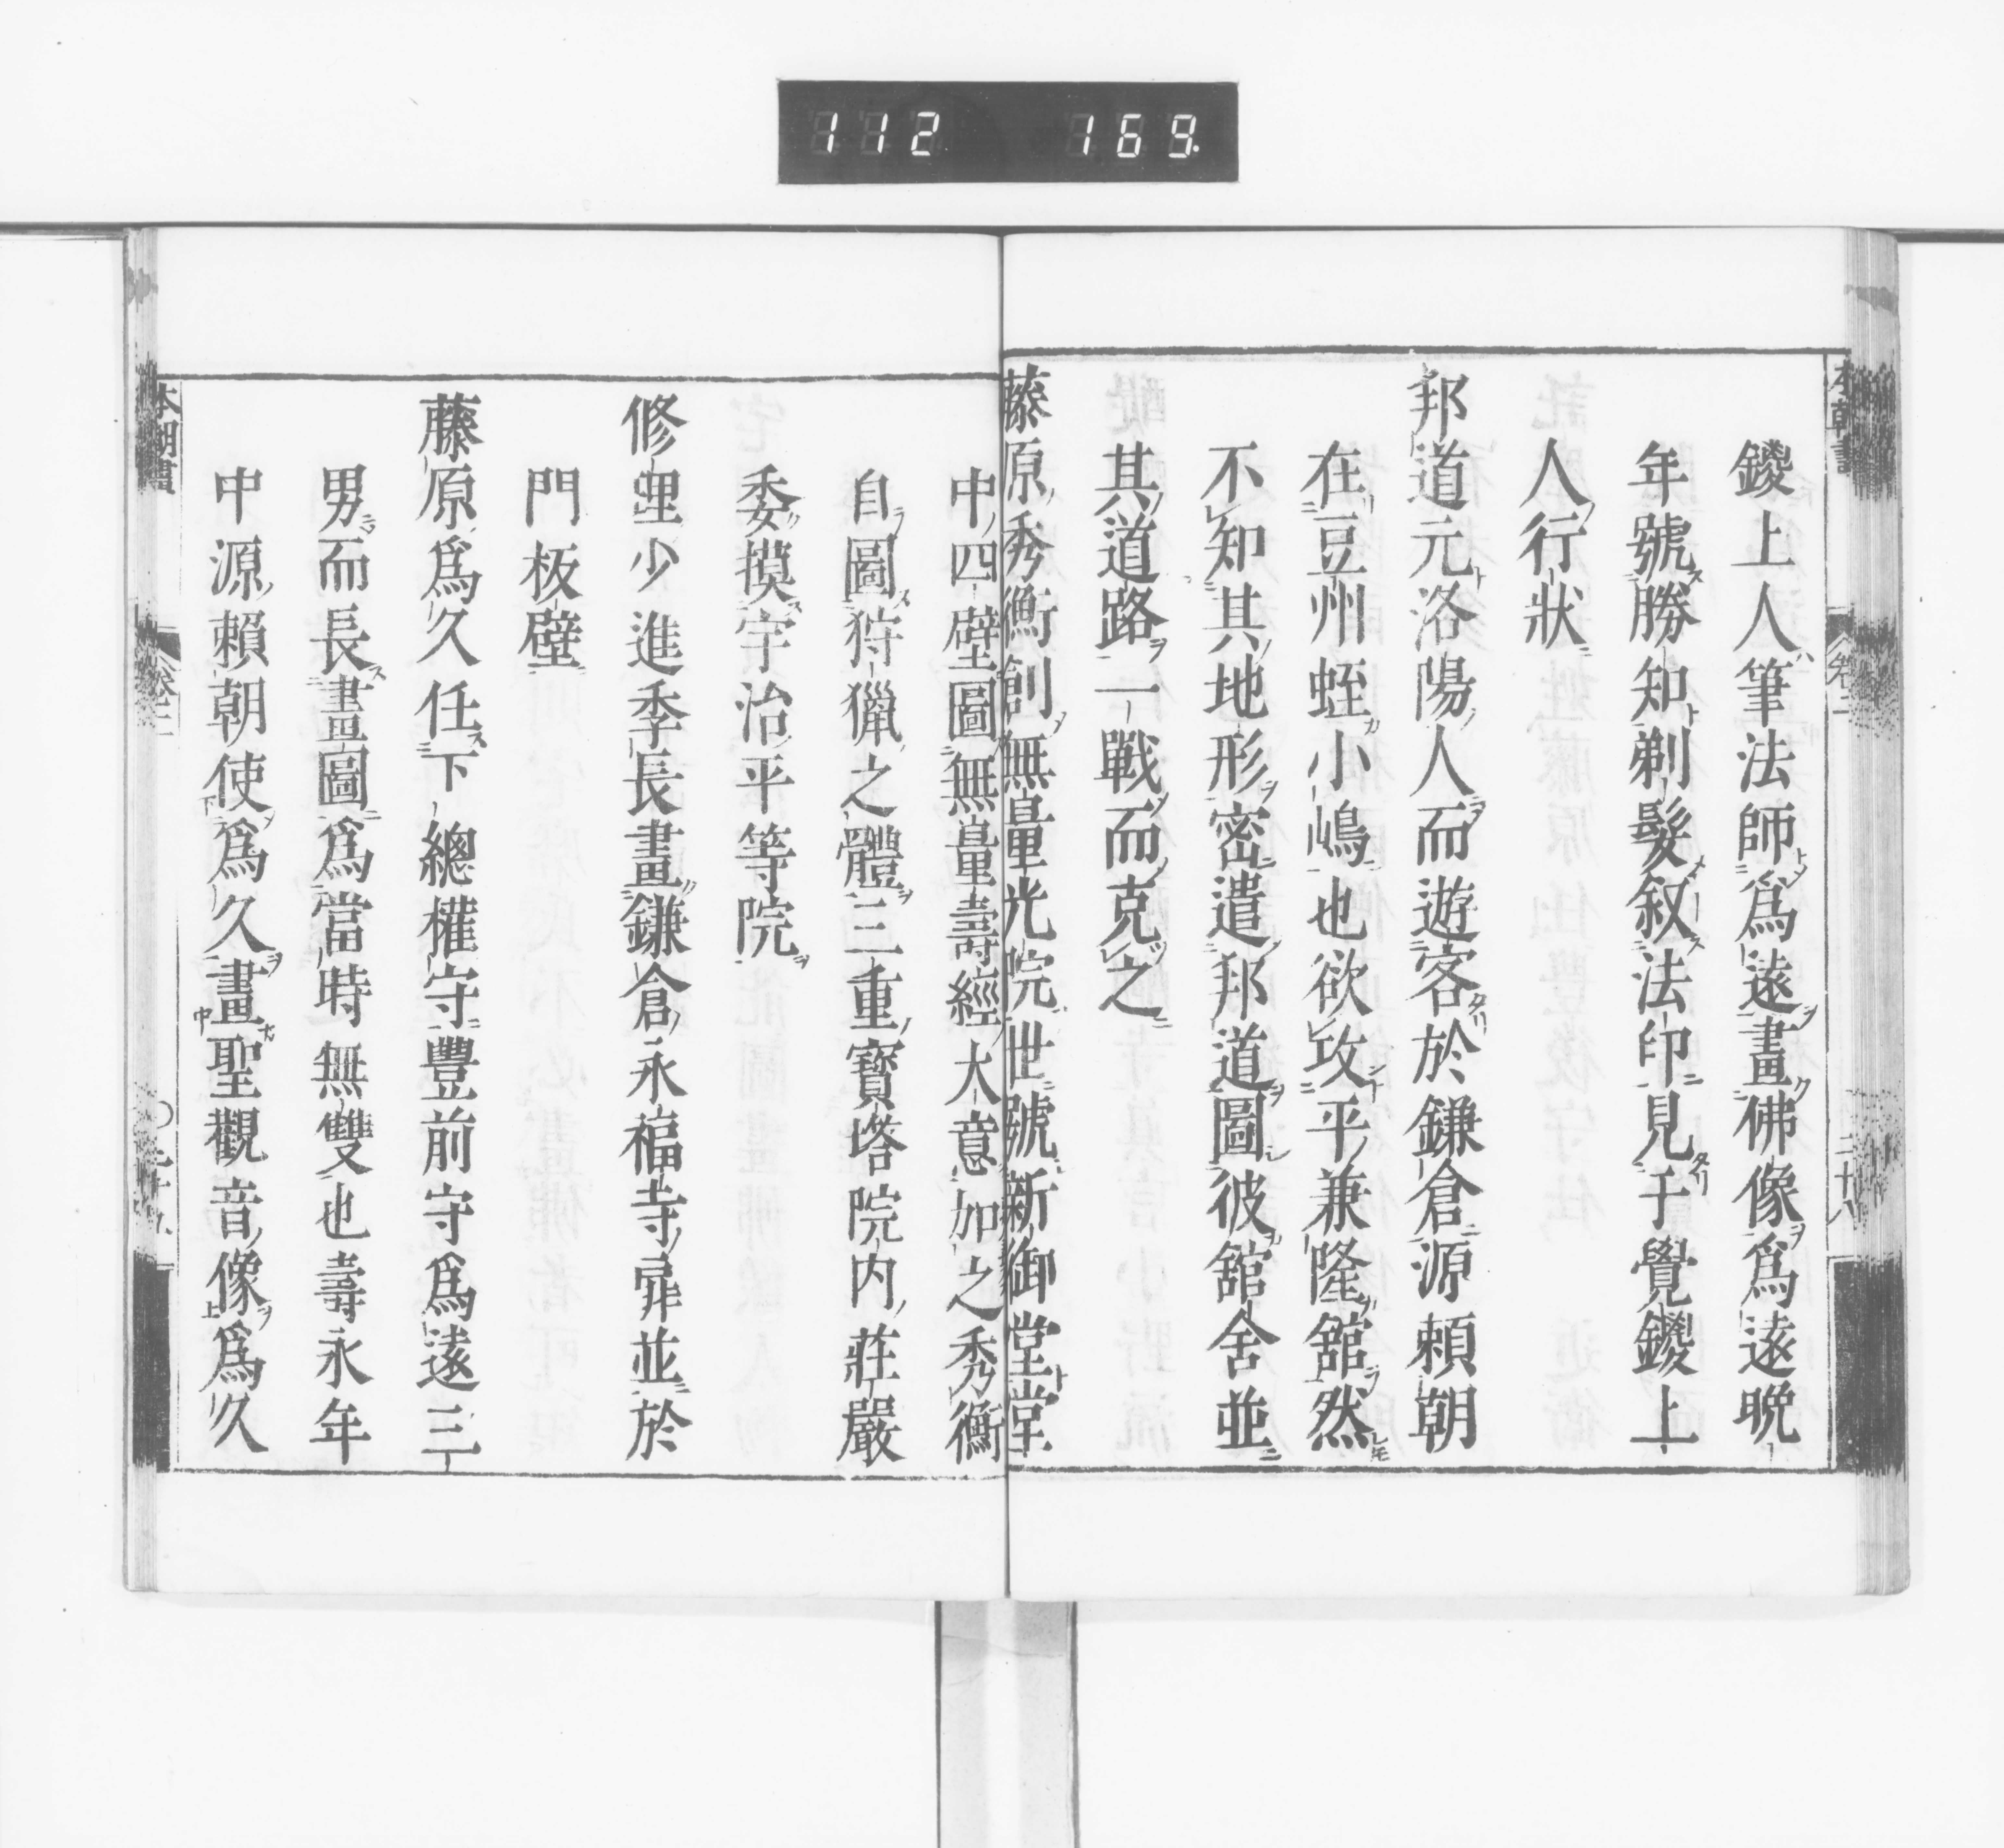 112 169.
鑁上人筆法師爲遠畫佛像爲遠晩
年號勝知剃髮叙法印見于覺鑁上
人行狀
邦道元洛陽人而遊客於鎌倉源頼朝
在豆州蛭小嶋也欲攻平兼隆舘然
不知其地形密遣邦道圖彼舘舍並
其道路一戰而克之
藤原秀衡創無量光院世號新御堂堂
中四壁圖無量壽經大意加之秀衡
自圖狩獵之體三重寳塔院内莊嚴
委摸宇治平等院
修理少進季長畫鎌倉永福寺扉並於
門板壁
藤原爲久任下總權守豐前守爲遠三
男而長畫圖爲當時無雙也壽永年
中源賴朝使爲久畫聖觀音像爲久